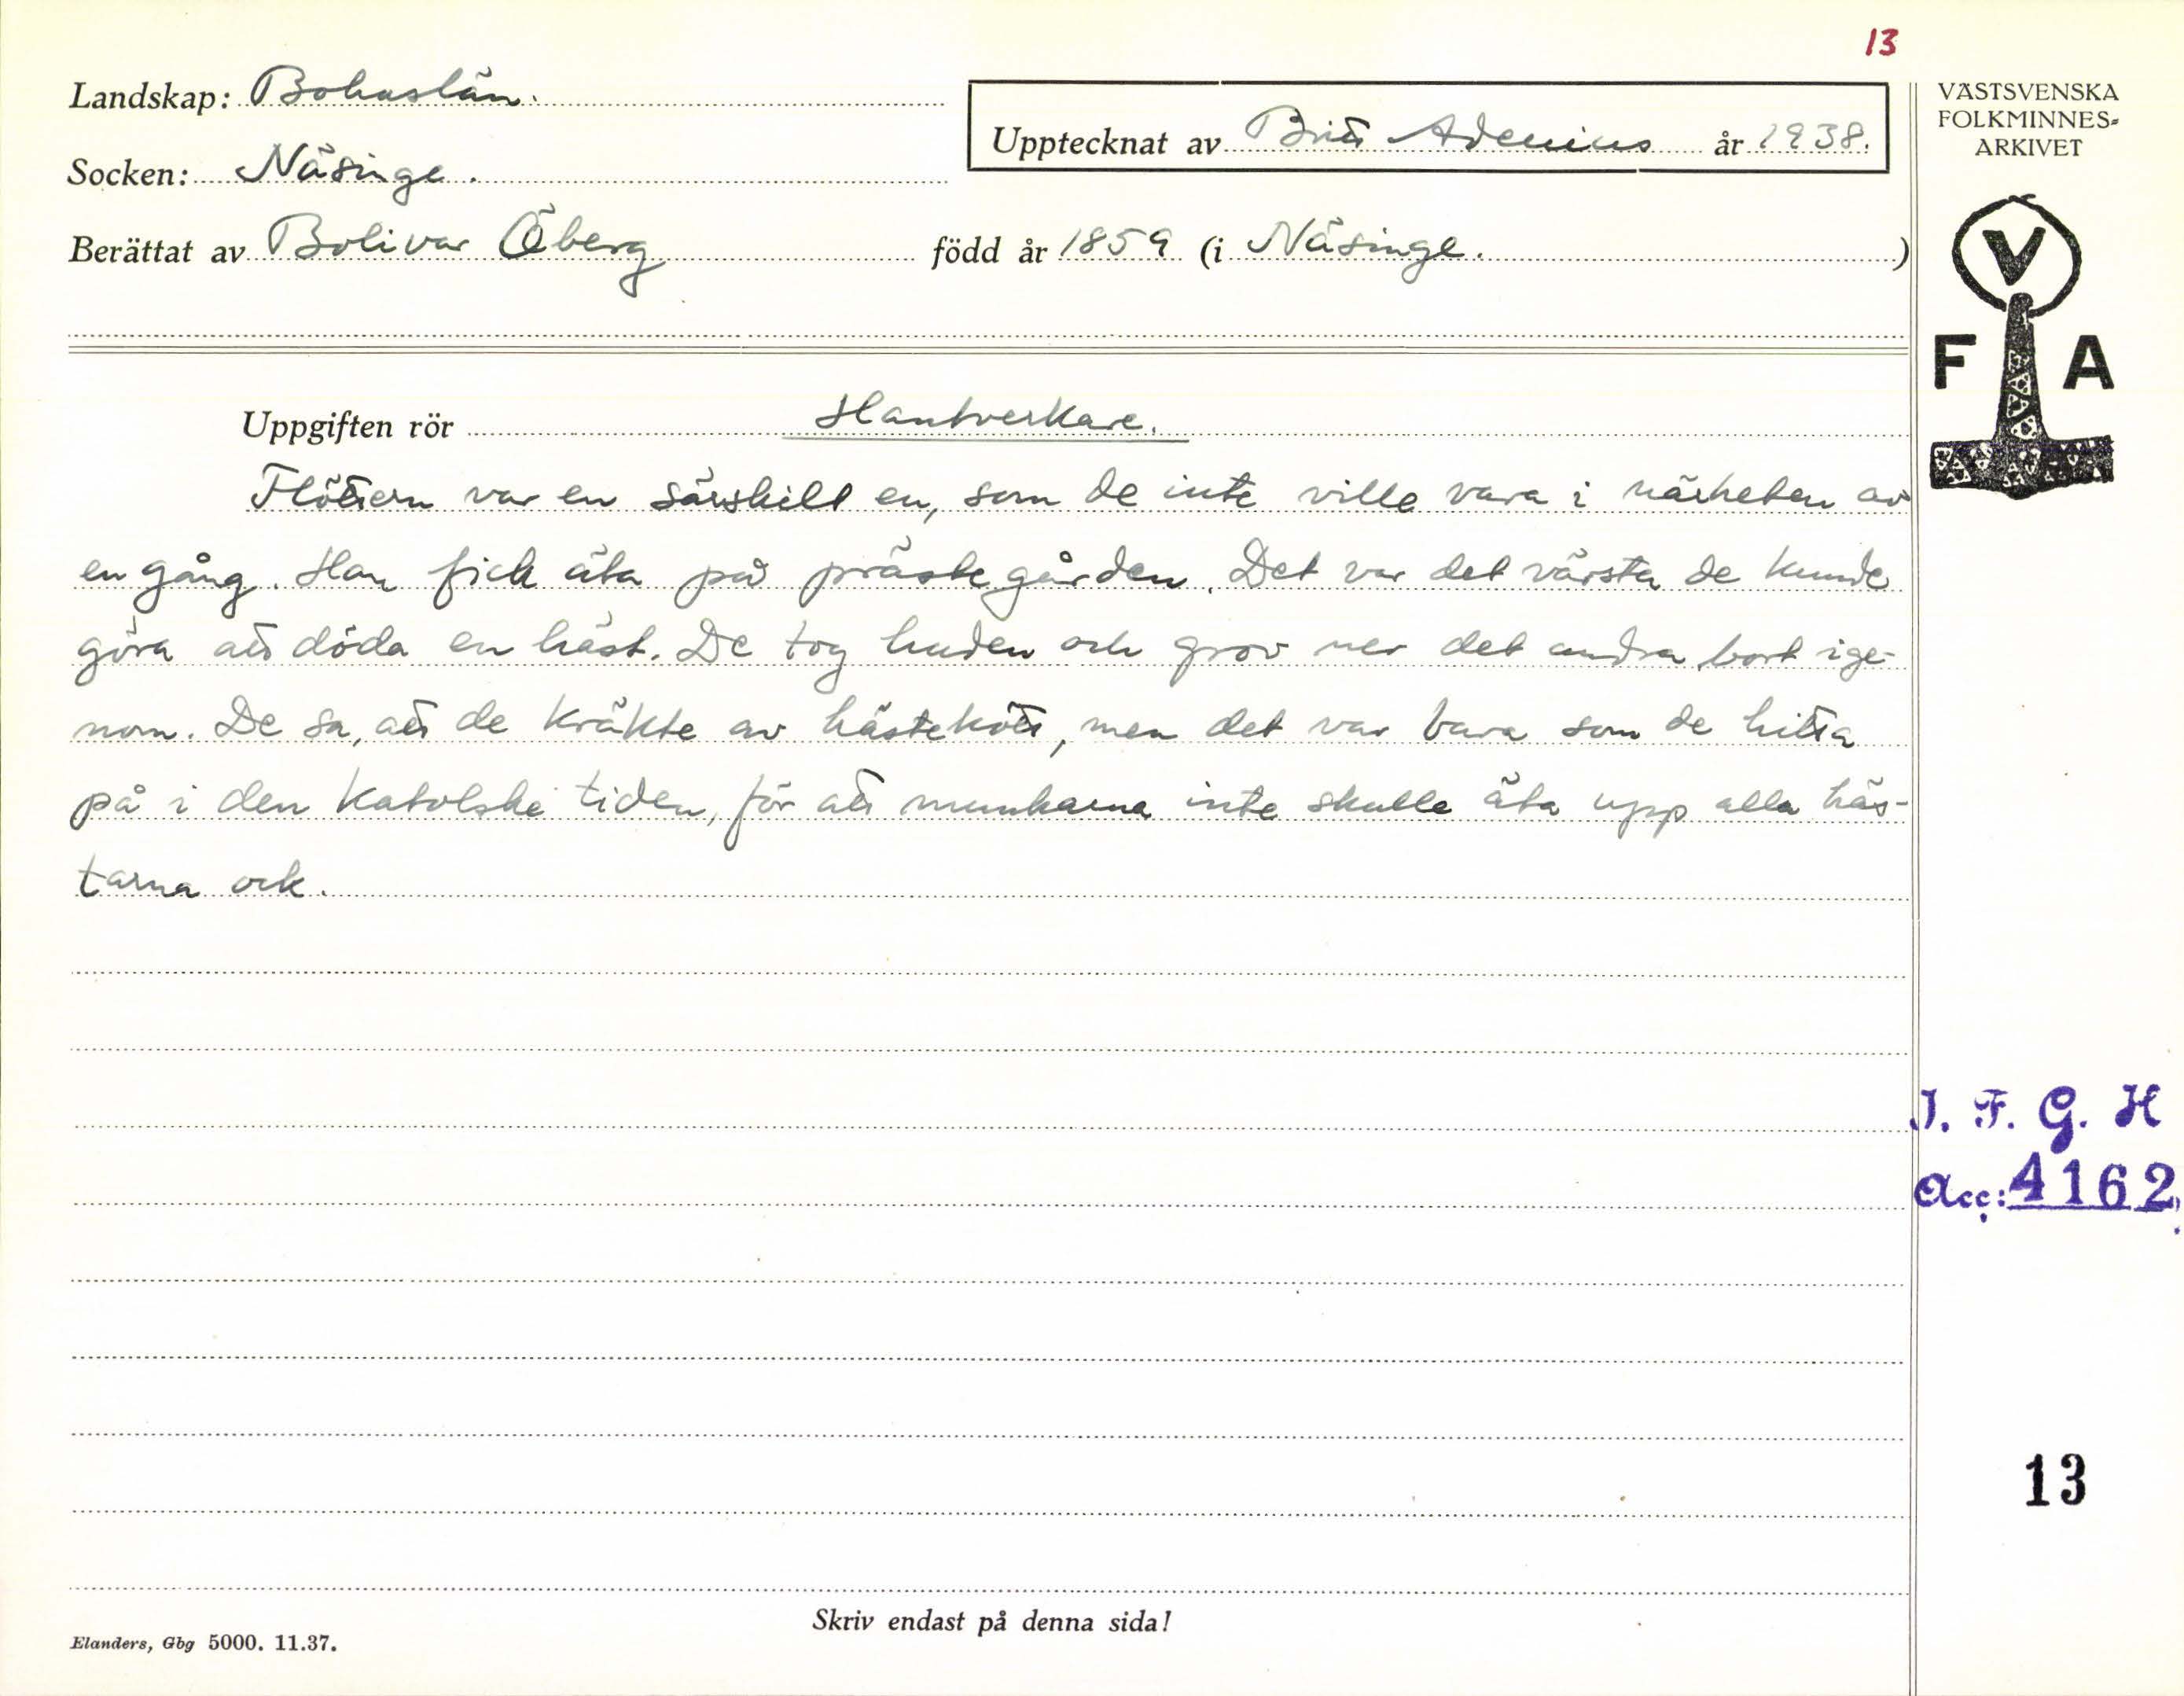 13
Landskap: Bohuslän.
Upptecknat av Britt Adenius år 1938.
Socken: Näsinge.
Berättat av Bolivar Öberg född år 1859 (i Näsinge.)
VÄSTSVENSKA
FOLKMINNES=
ARKIVET
V
F A
Uppgiften rör Hantverkare.
Flöttern var en särskilt en, som de inte ville vara i närheten av
en gång. Han fick äta på prästegården. Det var det värsta de kunde
göra att döda en häst. De tog huden och grov ner det andra bort ige-
nom. De sa, att de kräkte av hästekött, men det var bara som de hitta
på i den katolske tiden, för att munkarna inte skulle äta upp alla häs-
tarna ock.
I. F. G. H
Acc: 4162.
13
Skriv endast på denna sida!
Elanders, Gbg 5000. 11.37.